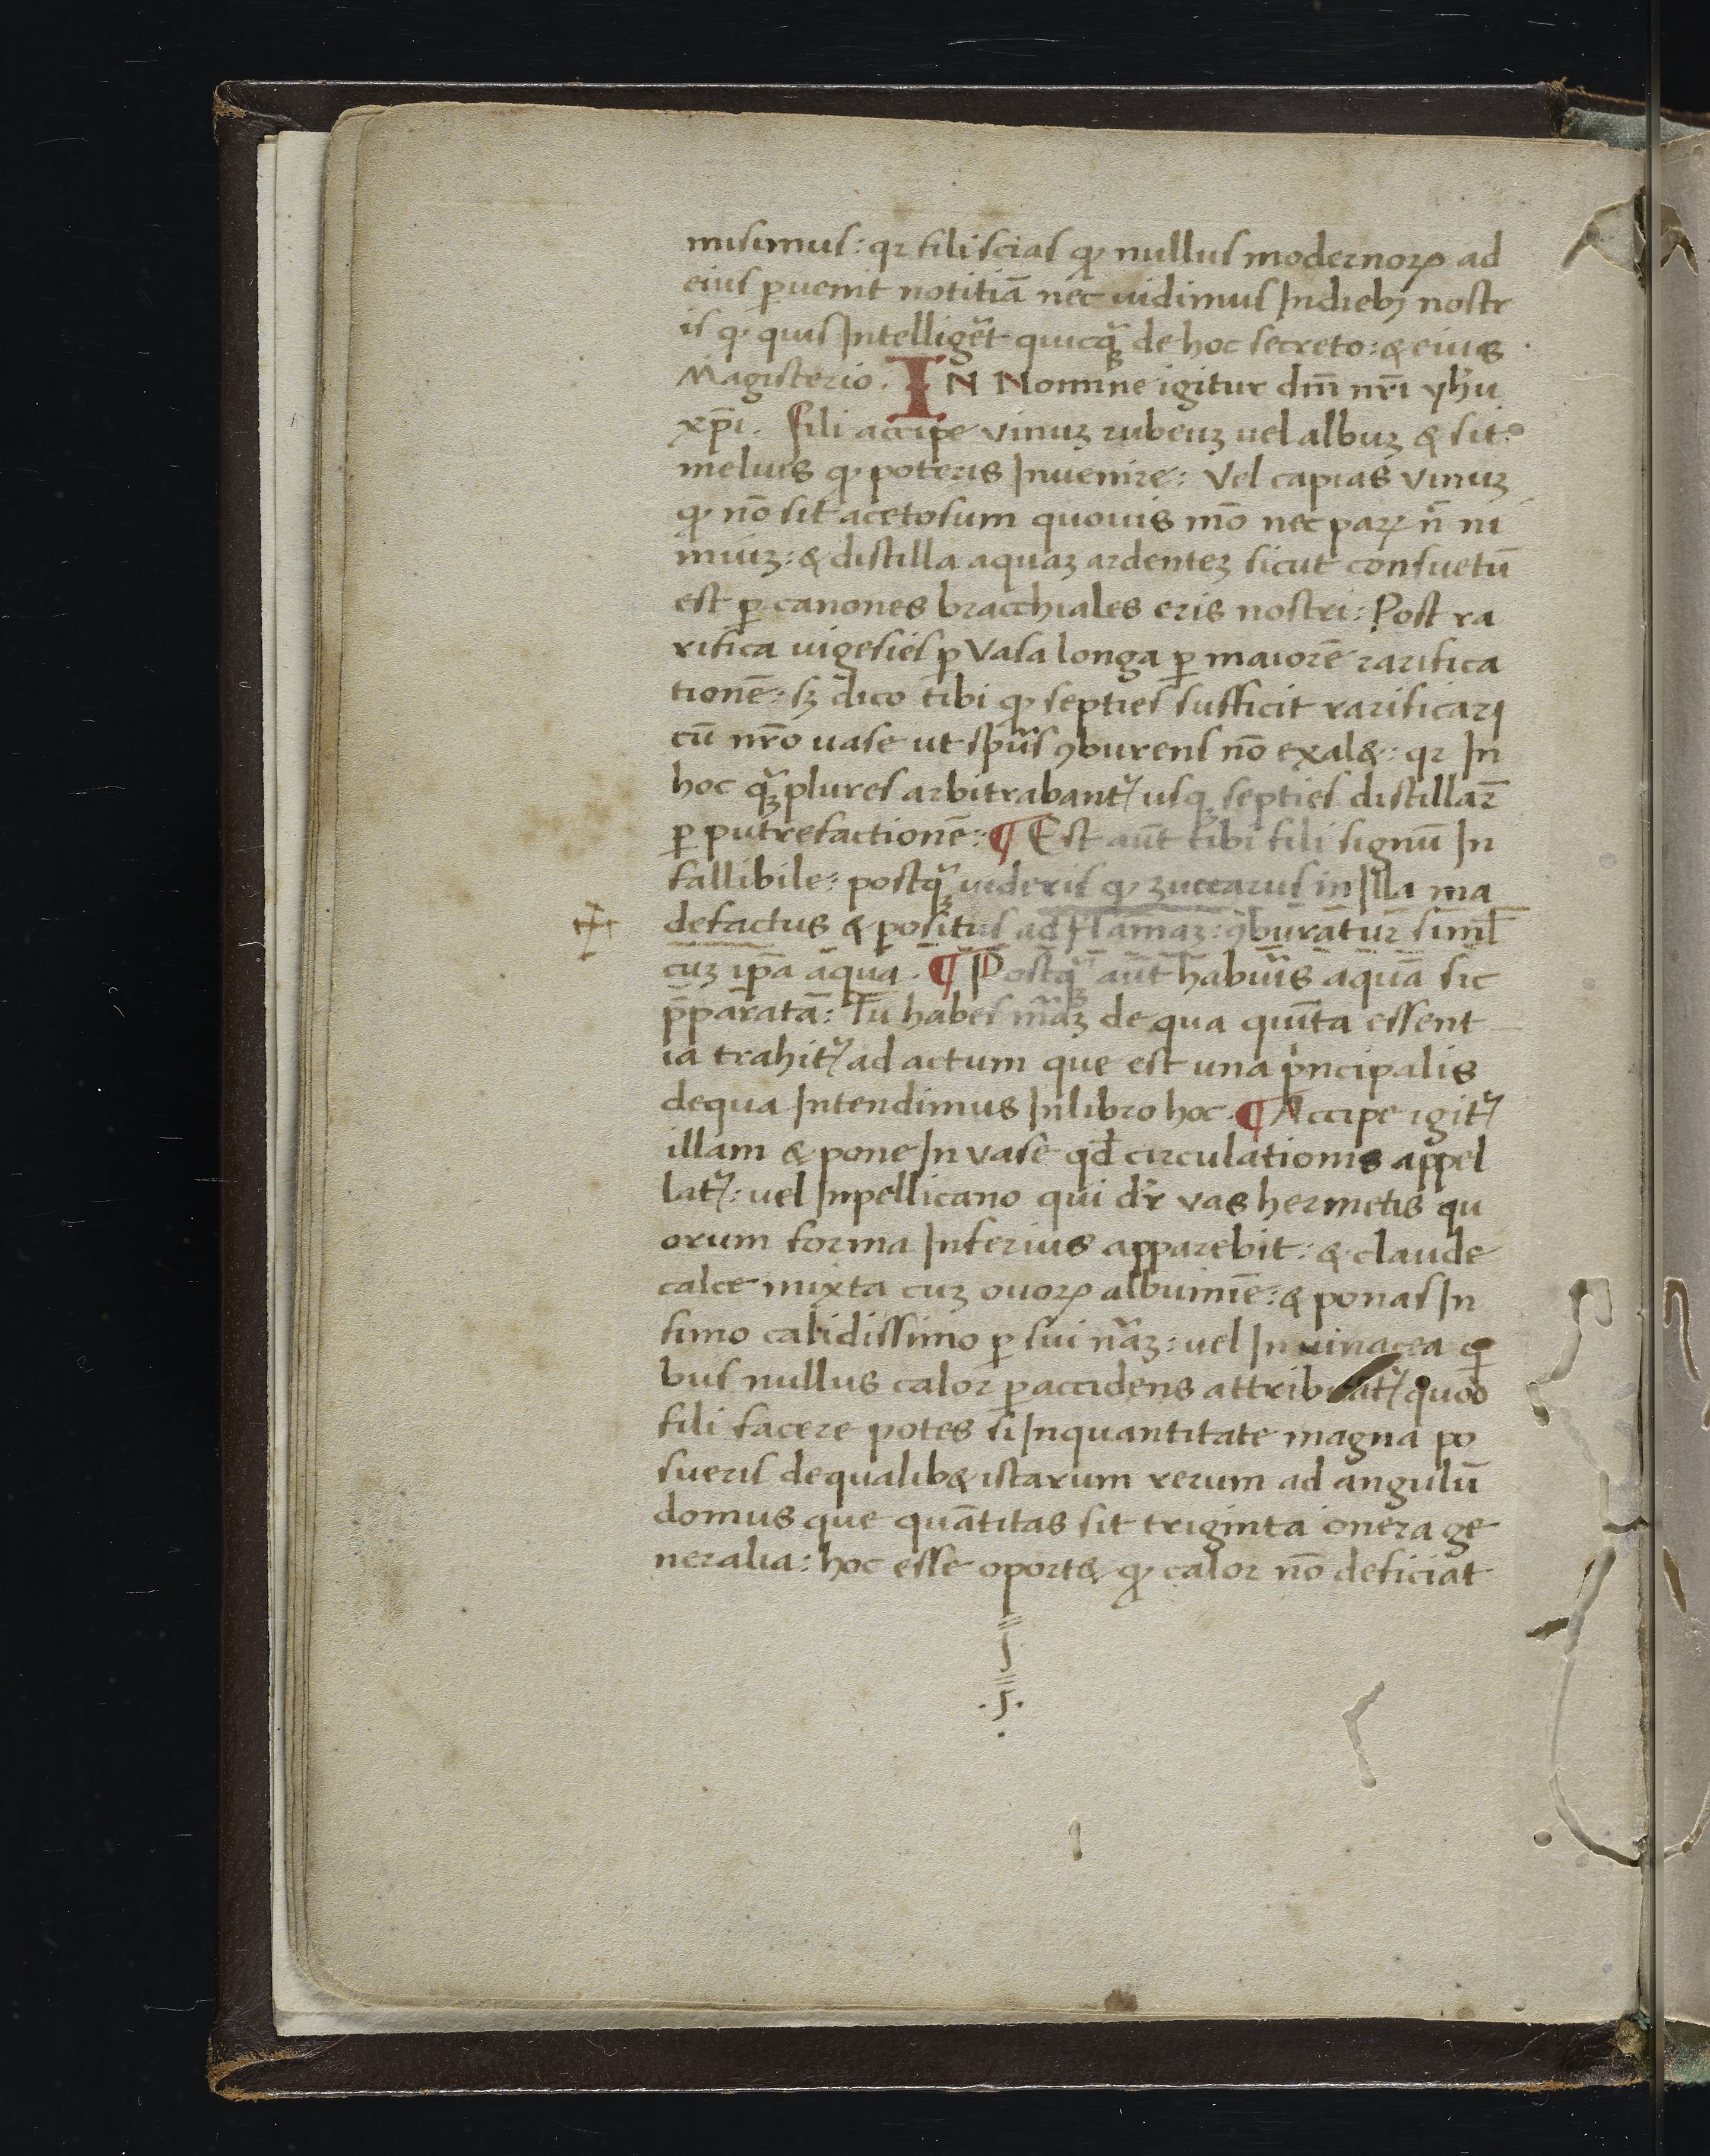 misimus: qr fili scias ꝙ nullus modernoꝝ ad
eius ꝑuenit notitiā nec uidimus Indiebꝫ nostr
is ꝙ quis Intelligēt quicqᷓꝫ de hoc secreto: & eius
Magisterio. IN Nomine igitur dm̄ nr̄i yħu
xp̄i. fili accipe vinuꝫ rubeuꝫ uel albuꝫ & sit
melius ꝙ poteris Inuenire: Vel capias vinuꝫ
ꝙ nō sit acetosum quouis mō nec paꝝ n̄ ni
miuꝫ: & distilla aquaꝫ ardenteꝫ sicut consuetū
est ꝑ canones bracchiales eris nostri: Post ra
rifica uigesies ꝑ Vasa longa ꝑ maiorē rarifica
tionē: sꝫ dico tibi ꝙ septies sufficit rarificari
cū nr̄o uase ut sp̄us ꝯburens nō exal&: qr In
hoc qᷓꝫplures arbitrabant᷑ usqꝫ septies distillar̄
ꝑ putrefactionē: ¶ Est aūt tibi fili signū In
fallibile: postqᷓꝫ uideris ꝙ zuccarus in Illa ma
defactus & positus ad flāmaꝫ: ꝯburātur siml̄
cuꝫ ip̄a aqua. ¶ Postqᷓꝫ aūt habuīs aquā sic
p̄paratā: Tu habes mᷓaꝫ de qua quīta essent
ia trahit᷑ ad actum que est una pͥncipalis
dequa Intendimus Inlibro hoc. ¶ Accipe igit᷑
illam & pone In vase qd̄ circulationis appel
lat᷑: uel Inpellicano qui dr̄ vas hermetis qu
orum forma Inferius apparebit: & claude
calce mixta cuꝫ ouoꝝ albumīe: & ponas In
fimo calidissimo ꝑ sui nᷓaꝫ: uel In uinacea qͥ
bus nullus calor ꝑaccidens attribuat᷑ quod
fili facere potes si Inquantitate magna po
sueris dequalib& istarum rerum ad angulū
domus que quātitas sit triginta onera ge
neralia: hoc esse oport& ꝙ calor nō deficiat